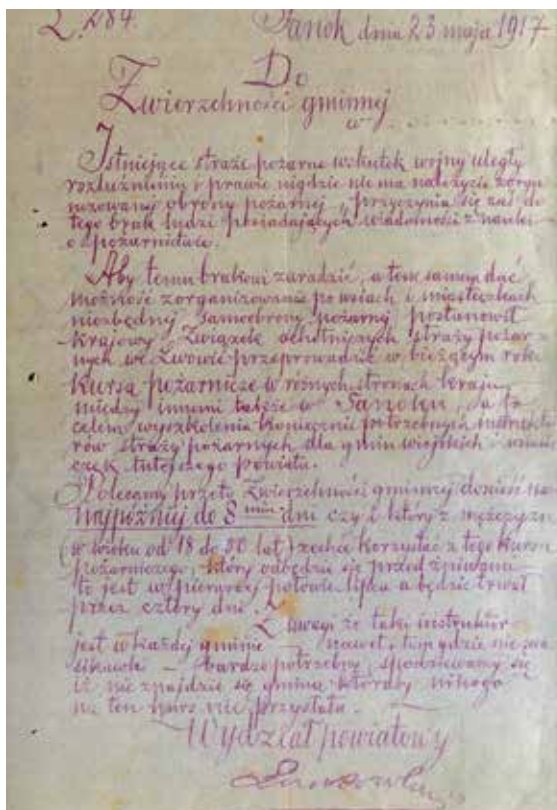 L. 284. Sanok dnia 23 maja 1917
Do
Zwierzchności gminnej
w
Istniejące straże pożarne wskutek wojny uległy
rozluźnieniu i prawie nigdzie nie ma należycie zorga
nizowanej obrony pożarnej, przyczynia się zaś do
tego brak ludzi posiadających wiadomości z nauki
o pożarnictwie.
Aby temu brakowi zaradzić, a tem samem dać
możność zorganizowania po wsiach i miasteczkach
niezbędnej samoobrony pożarnej postanowił
krajowy Związek ochotniczych straży pożar-
nych we Lwowie przeprowadzić w bieżącym roku
kursa pożarnicze w różnych stronach kraju
między innemi także w Sanoku, a to
celem wyszkolenia koniecznie potrzebnych instrukto
rów straży pożarnych dla gmin wiejskich i miaste
czek tutejszego powiatu.
Polecamy przeto Zwierzchności gminnej donieść na
wypóźniej do 8 dni czy i który z mężczyzn
(w wieku od 18 do 50 lat) zechce korzystać z tego kursu
pożarniczego, który odbędzie się przed żniwami
to jest w pierwszej połowie lipca a będzie trwał
przez cztery dni.
Z uwagi że taki instruktor
jest w każdej gminie — nawet i tam gdzie nie ma
sikawki — bardzo potrzebny, spodziewamy się
iż nie znajdzie się gmina któraby nikogo
na ten kurs nie przysłała. —
Wydział powiatowy